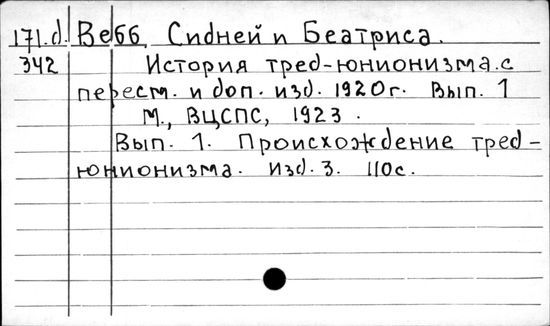 171.d. Вебб, Сидней и Беатриса.
342 История тред-юнионизма. с
пересм. и доп. изд. 1920г. Вып. 1
М., ВЦСПС, 1923.
Вып. 1. Происхождение тред-
юнионизма. изд. 3. 110с.